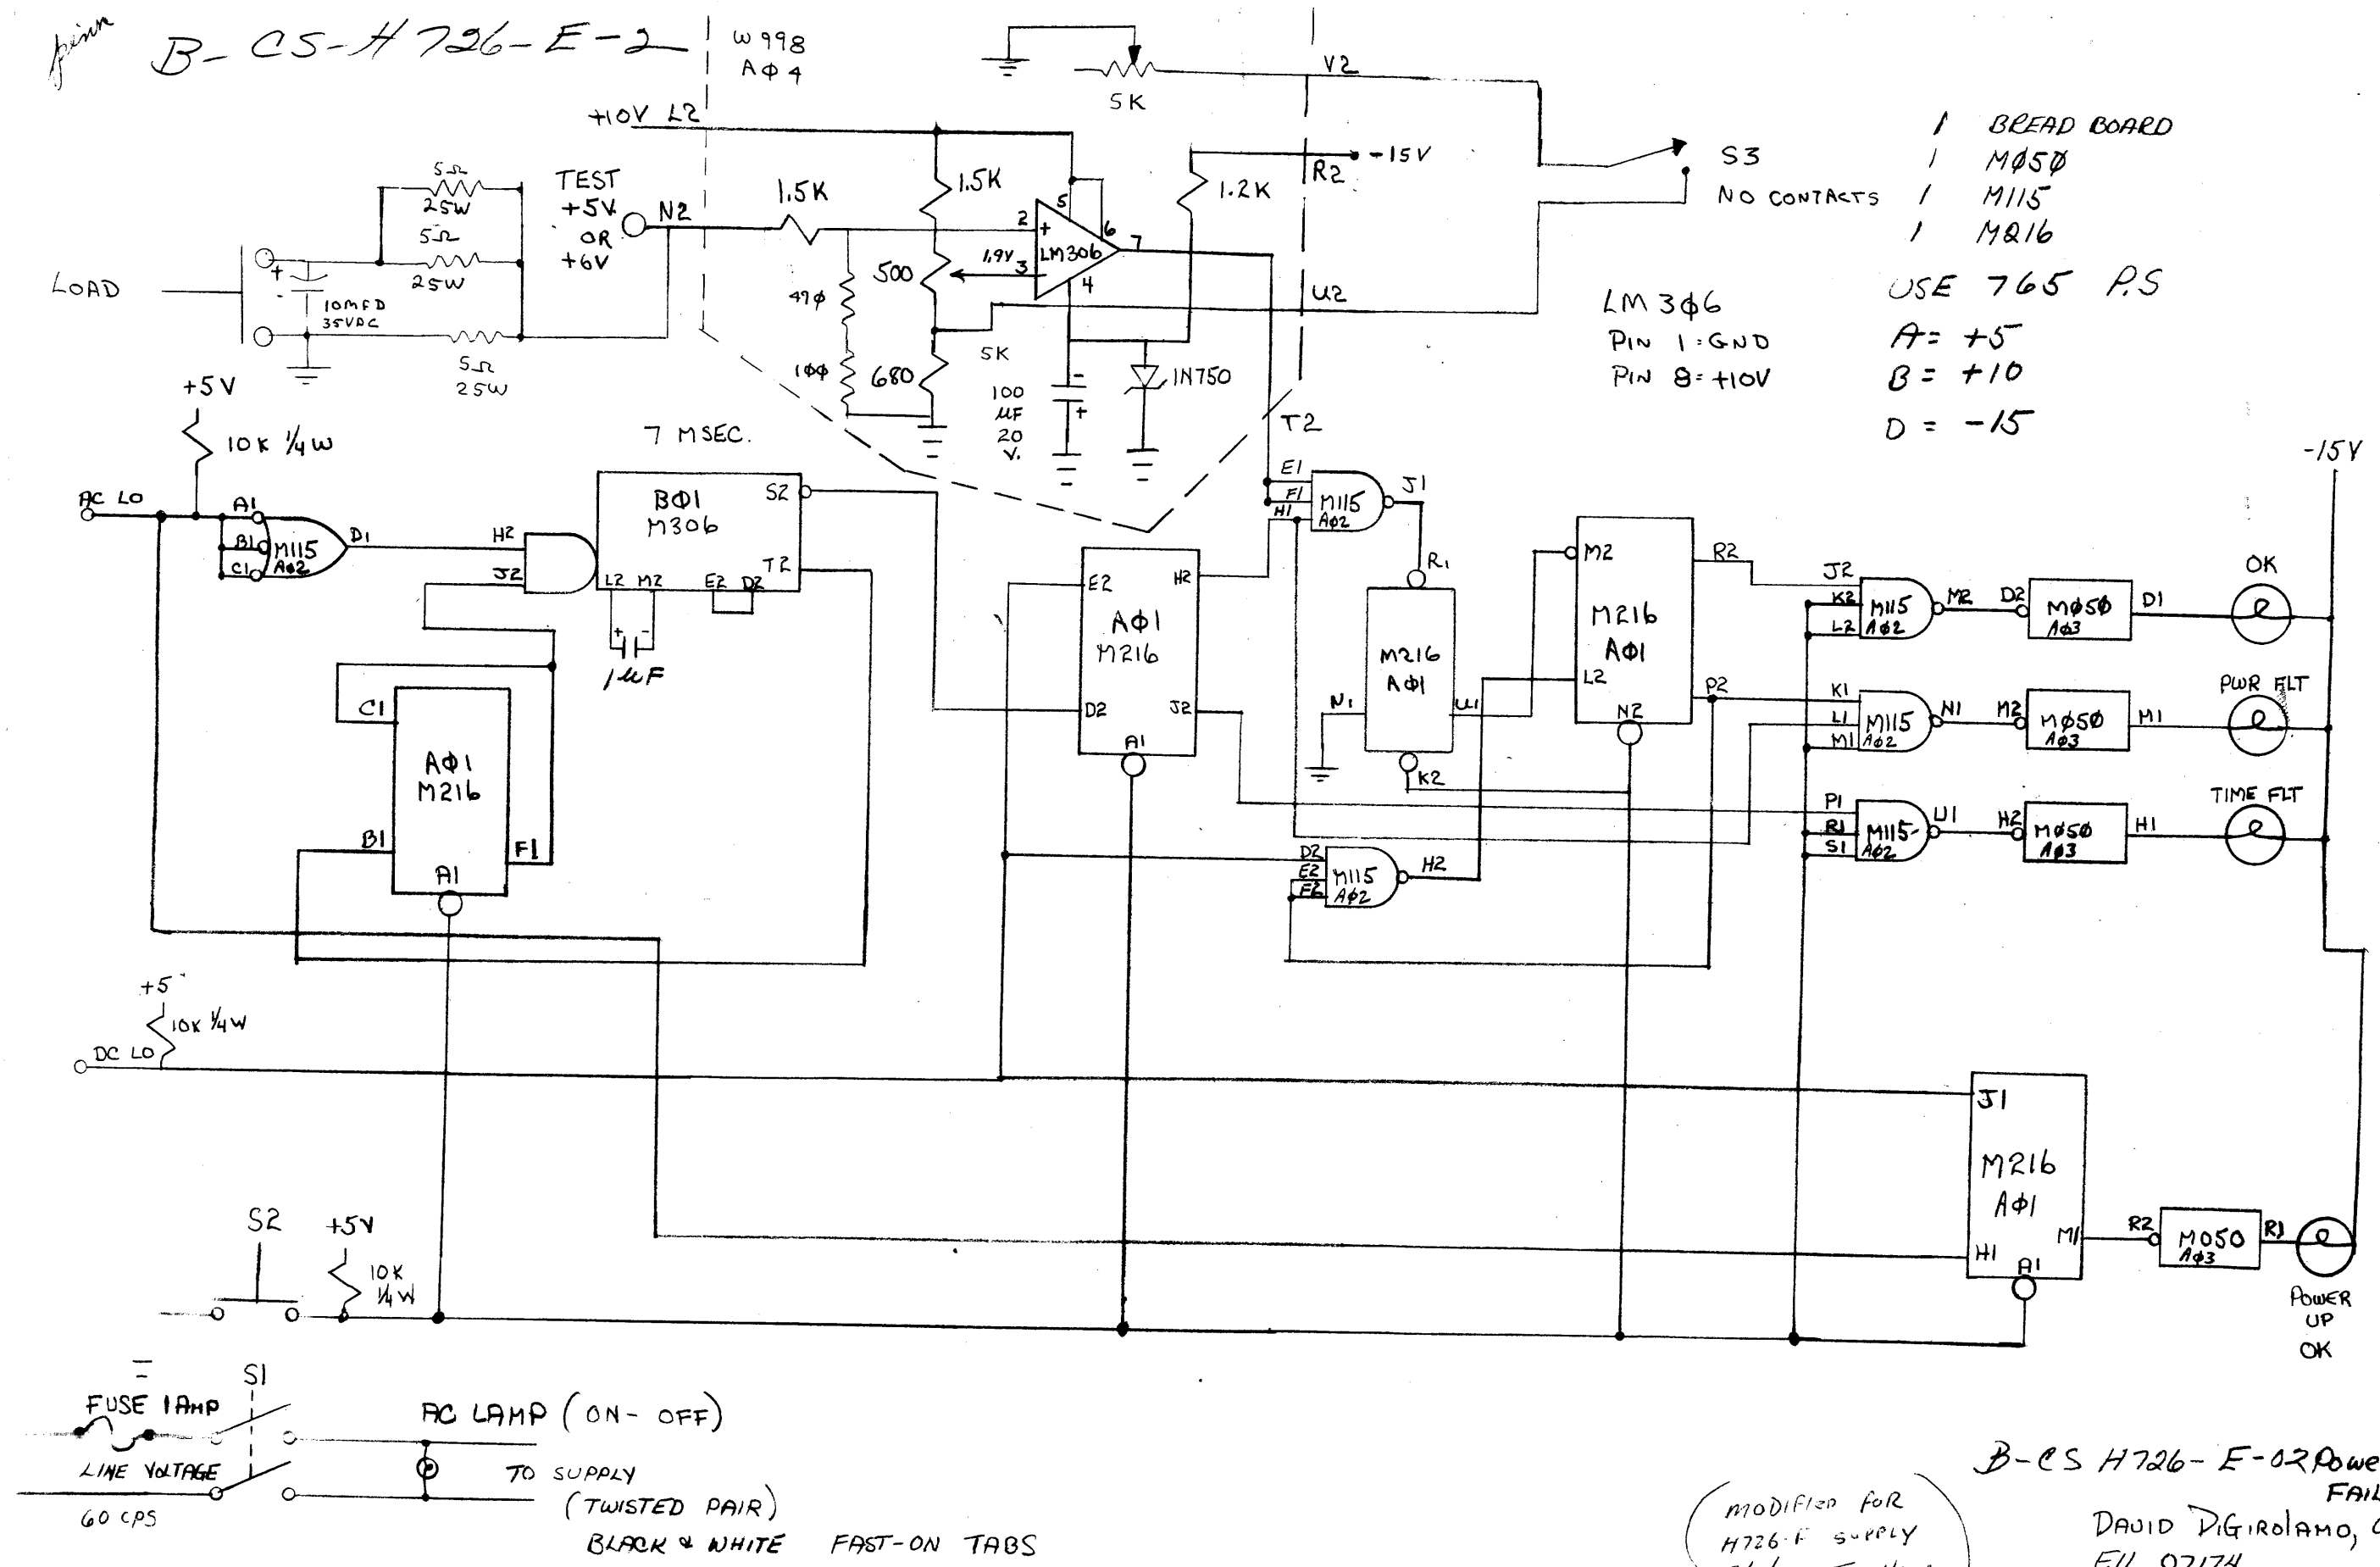 B-CS-H726-E-2
W998
AΦ4
5K
V2
+10V L2
-15V
R2
S3
NO CONTACTS
1 BREAD BOARD
1 MØ5Ø
1 M115
1 M216
USE 765 P.S
A= +5
B= +10
D = -15
LM3Φ6
PIN 1=GND
PIN 8=+10V
TEST
+5V
OR
+6V
N2
1.5K
1.5K
1.2K
5Ω
25W
5Ω
25W
5Ω
25W
LOAD
+
-
10MFD
35VDC
2
+
5
6
LM306
7
1.9V
3
4
500
47Φ
1ΦΦ
680
5K
U2
-
+
100
µF
20
V.
1N750
T2
+5V
10K ¼W
7 MSEC.
AC LO
A1
B1
C1
M115
AΦ2
D1
H2
J2
BΦ1
M306
S2
T2
L2
M2
E2
D2
+
-
1µF
C1
AΦ1
M216
B1
F1
A1
E2
H2
AΦ1
M216
D2
J2
A1
E1
F1
H1
M115
AΦ2
J1
R1
M216
AΦ1
N1
U1
K2
M2
M216
AΦ1
L2
N2
R2
P2
D2
E2
F2
M115
AΦ2
H2
-15V
J2
K2
L2
M115
AΦ2
M2
D2
MØ5Ø
AΦ3
D1
OK
K1
L1
M1
M115
AΦ2
N1
M2
MØ5Ø
AΦ3
M1
PWR FLT
P1
R1
S1
M115
AΦ2
U1
H2
MØ5Ø
AΦ3
H1
TIME FLT
+5
10K ¼W
DC LO
J1
M216
AΦ1
H1
M1
A1
R2
M050
AΦ3
R1
POWER
UP
OK
S2
+5V
10K
¼W
S1
FUSE 1 AMP
LINE VOLTAGE
60 CPS
AC LAMP (ON-OFF)
TO SUPPLY
(TWISTED PAIR)
BLACK & WHITE FAST-ON TABS
B-CS H726-E-02 Powe
FAIL
MODIFIED FOR
H726-F SUPPLY
DAVID DIGIROLAMO,